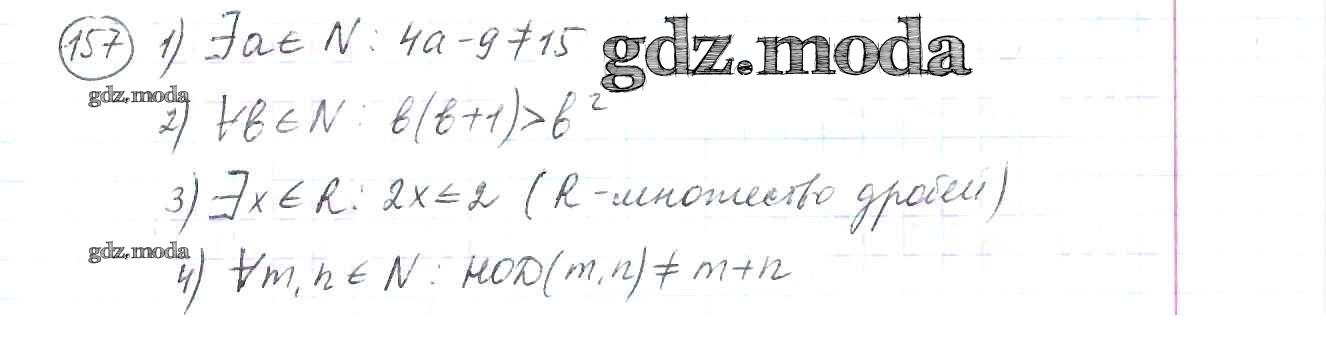 157 1) ∃a∈N: 4a-9≠15 gdz.moda
gdz.moda
2) ∀b∈N: b(b+1)>b²
3) ∃x∈R: 2x≤2 (R-множество дробей)
gdz.moda
4) ∀m,n∈N: НОД(m,n)≠m+n